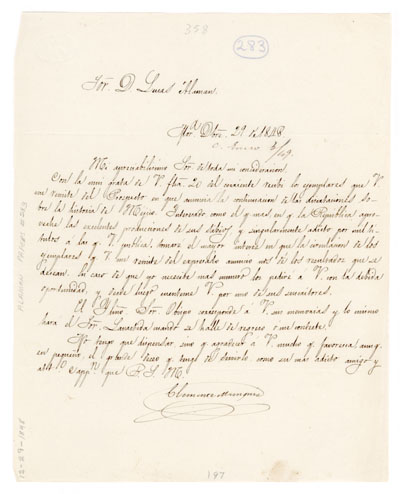 358
283
Sor. D. Lucas Alaman.
Mora. Dbre. 29 de 1848
c. Enero 3/49.
Mi apreciabilísimo Sor. de toda mi consideracion.
Con la muy grata de V. fha. 20 del corriente recibo los ejemplares que V.
me remite del Prospecto en que anuncia la continuacion de las disertaciones so-
bre la historia de Mejico. Interesado como el q. mas en q. la Republica apro-
veche las excelentes producciones de sus sabios y singularmente adicto por mil ti-
tulos a las q. V. publica, tomaré el mayor interes en que la circulacion de los
ejemplares q. V. me remite del espresado anuncio de los resultados que se
desean. En caso de que yo necesite mas numero los pediré a V. con la debida
oportunidad, y desde luego cuenteme V. por uno de sus suscritores.
El Ylmo. Sor. Obispo corresponde a V. sus memorias y lo mismo
hará el Sor. cuando se halle de regreso o me conteste.
No tengo que dispensar sino q. agradecer a V. mucho q. favoresca aunq.
en pequeño el grande deseo q. tengo de servirlo como su mas adicto amigo y
Cappn. que B. S. M.
Clemente Munguia
197
ALAMAN PAPERS #283
12-29-1848